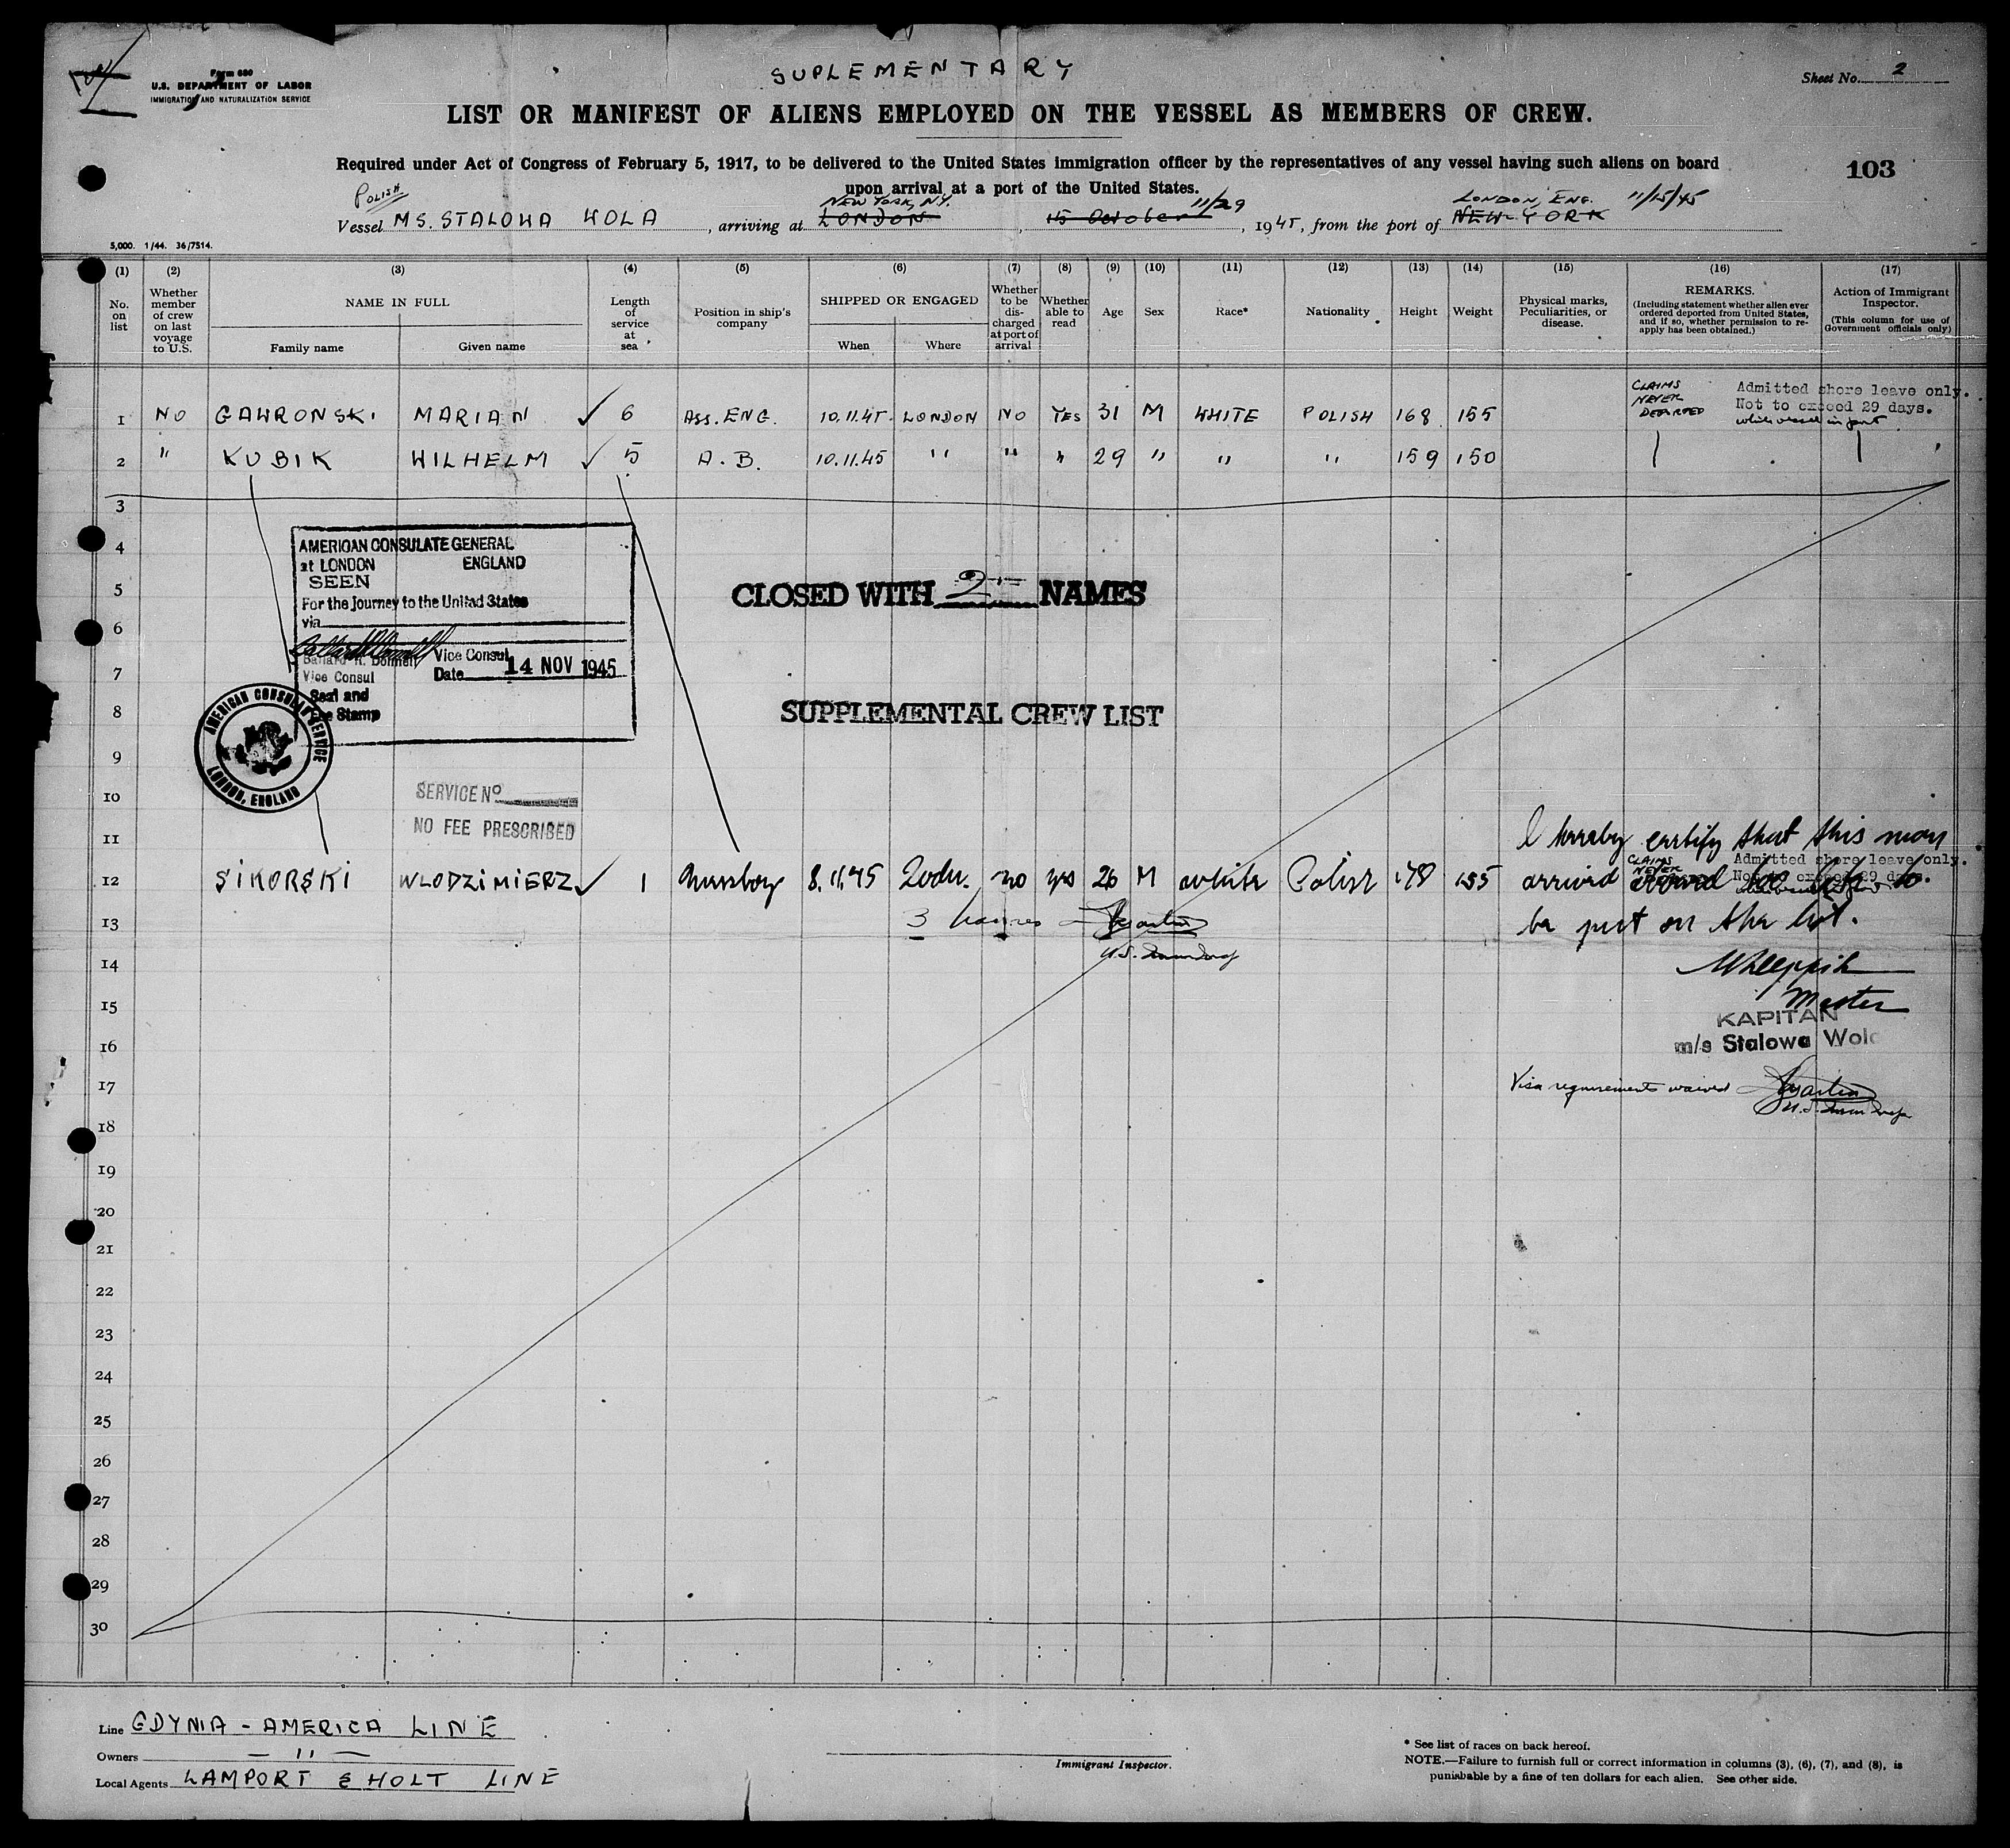 Form 680
U.S. DEPARTMENT OF LABOR
IMMIGRATION AND NATURALIZATION SERVICE
SUPLEMENTARY
Sheet No. 2
LIST OR MANIFEST OF ALIENS EMPLOYED ON THE VESSEL AS MEMBERS OF CREW.
Required under Act of Congress of February 5, 1917, to be delivered to the United States immigration officer by the representatives of any vessel having such aliens on board
upon arrival at a port of the United States.
103
POLISH NEW YORK, N.Y. 11/29 LONDON, ENG. 11/15/45
Vessel MS. STALOWA WOLA, arriving at LONDON, 15 October, 1945, from the port of NEW-YORK
5,000. 1/44. 36/7514.
(1) (2) (3) (4) (5) (6) (7) (8) (9) (10) (11) (12) (13) (14) (15) (16) (17)
No. on list
Whether member of crew on last voyage to U.S.
NAME IN FULL
Family name Given name
Length of service at sea
Position in ship's company
SHIPPED OR ENGAGED
When Where
Whether to be discharged at port of arrival
Whether able to read
Age
Sex
Race*
Nationality
Height
Weight
Physical marks, Peculiarities, or disease.
REMARKS.
(Including statement whether alien ever ordered deported from United States, and if so, whether permission to reapply has been obtained.)
Action of Immigrant Inspector.
(This column for use of Government officials only)
CLAIMS NEVER DEPORTED
Admitted shore leave only.
Not to exceed 29 days.
while vessel in port
1 NO GAWRONSKI MARIAN ✓ 6 ASS. ENG. 10.11.45. LONDON NO YES 31 M WHITE POLISH 168 155
2 " KUBIK WILHELM ✓ 5 A.B. 10.11.45 " " " 29 " " " 159 150
3
4
5
6
7
8
9
10
11
AMERICAN CONSULATE GENERAL
at LONDON ENGLAND
SEEN
For the Journey to the United States
via
Ballard R. Donnelly Vice Consul
Vice Consul
Date 14 NOV 1945
Seal and
Fee Stamp
AMERICAN CONSULAR SERVICE
LONDON, ENGLAND
CLOSED WITH 2 NAMES
SUPPLEMENTAL CREW LIST
SERVICE No
NO FEE PRESCRIBED
I hereby certify that this man
CLAIMS NEVER
Admitted shore leave only.
Not to exceed 29 days.
12 SIKORSKI WLODZIMIERZ ✓ 1 Messboy 8.11.45 no yes 26 M white Polish 178 155 arrived
13 3 names
be put on the list.
U.S.
14
Master
15
KAPITAN
m/s Stalowa Wola
16
17
Visa requirements waived
U.S.
18
19
20
21
22
23
24
25
26
27
28
29
30
Line GDYNIA - AMERICA LINE
Owners — " —
Local Agents LAMPORT & HOLT LINE
Immigrant Inspector.
* See list of races on back hereof.
NOTE.—Failure to furnish full or correct information in columns (3), (6), (7), and (8), is
punishable by a fine of ten dollars for each alien. See other side.